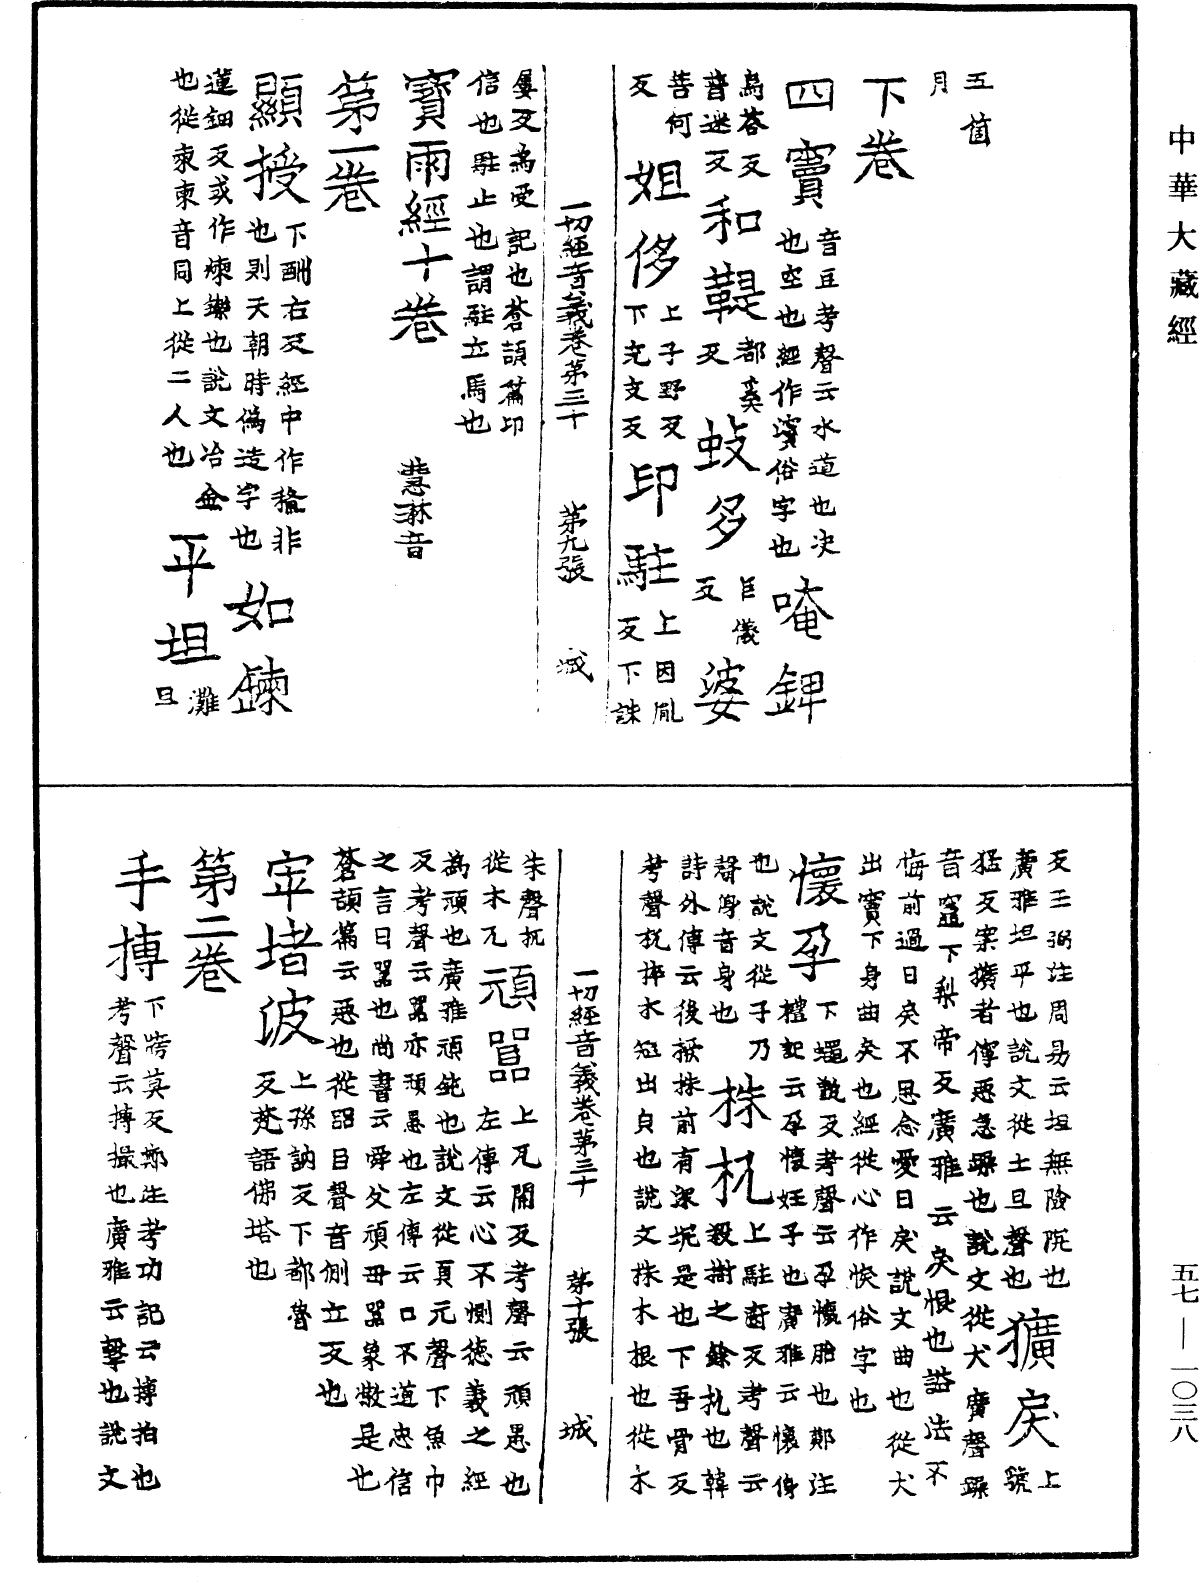 中華大藏經
五箇
月
下卷
四竇音豆考聲云水道也決也空也經作瀆俗字也唵鋰
烏荅反普迷反和鞮都奚反蚑多巨儀反婆
菩何反姐侈上子野反下充支反印駐上因胤反下誅
一切經音義卷第三十 第九張 城
屢反為受記也蒼頡篇印
信也駐止也謂駐立馬也
寶雨經十卷 慧琳音
第一卷
顯授下酬右反經中作𥠢非也則天朝時偽造字也如鍊
蓮鈿反或作煉鑠也說文冶金也從柬柬音同上從二人也平坦灘旦
反王弼注周易云坦無險阨也
廣雅坦平也說文從土旦聲也獷戾上號
猛反案獷者傳惡急躁也說文從犬廣聲躁
音竈下梨帝反廣雅云戾恨也謚法不
悔前過曰戾不思念愛曰戾說文曲也從犬
出竇下身曲戾也經從心作悷俗字也
懷孕下蠅證反考聲云孕懷胎也鄭注
禮記云孕懷妊子也廣雅云懷身
也說文從子乃聲身音身也株杌上駐廚反考聲云殺樹之餘杌也韓
詩外傳云後掘株前有深坑是也下吾骨反
考聲杌捽木短出貞也說文株木根也從木
一切經音義卷第三十 第十張 城
朱聲杌從木兀頑嚚上瓦關反考聲云頑愚也左傳云心不惻德義之經
為頑也廣雅頑鈍也說文從頁元聲下魚巾
反考聲云嚚亦頑愚也左傳云口不道忠信
之言曰嚚也尚書云舜父頑毋嚚象傲是也
蒼頡篇云惡也從㗊目聲音側立反也
窣堵波上孫訥反下都魯反梵語佛塔也
第二卷
手搏下㝑莫反鄭注考功記云搏拍也
考聲云摶撮也廣雅云擊也說文
五七—一〇三八